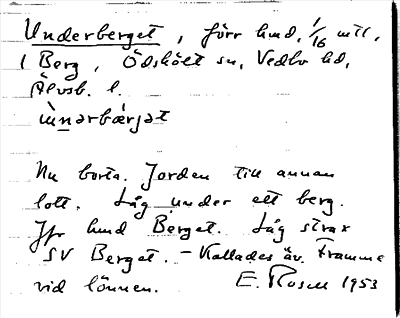 Underberget, förr hmd, 1/16 mtl,
1 Berg, Ödskölt sn, Vedbo hd,
Älvsb. l.
ùnərbærjət
Nu borta. Jorden till annan
lott. Låg under ett berg.
Jfr hmd Berget. Låg strax
SV Berget. – Kallades äv. Framme
vid lönnen. E. Rosell 1953